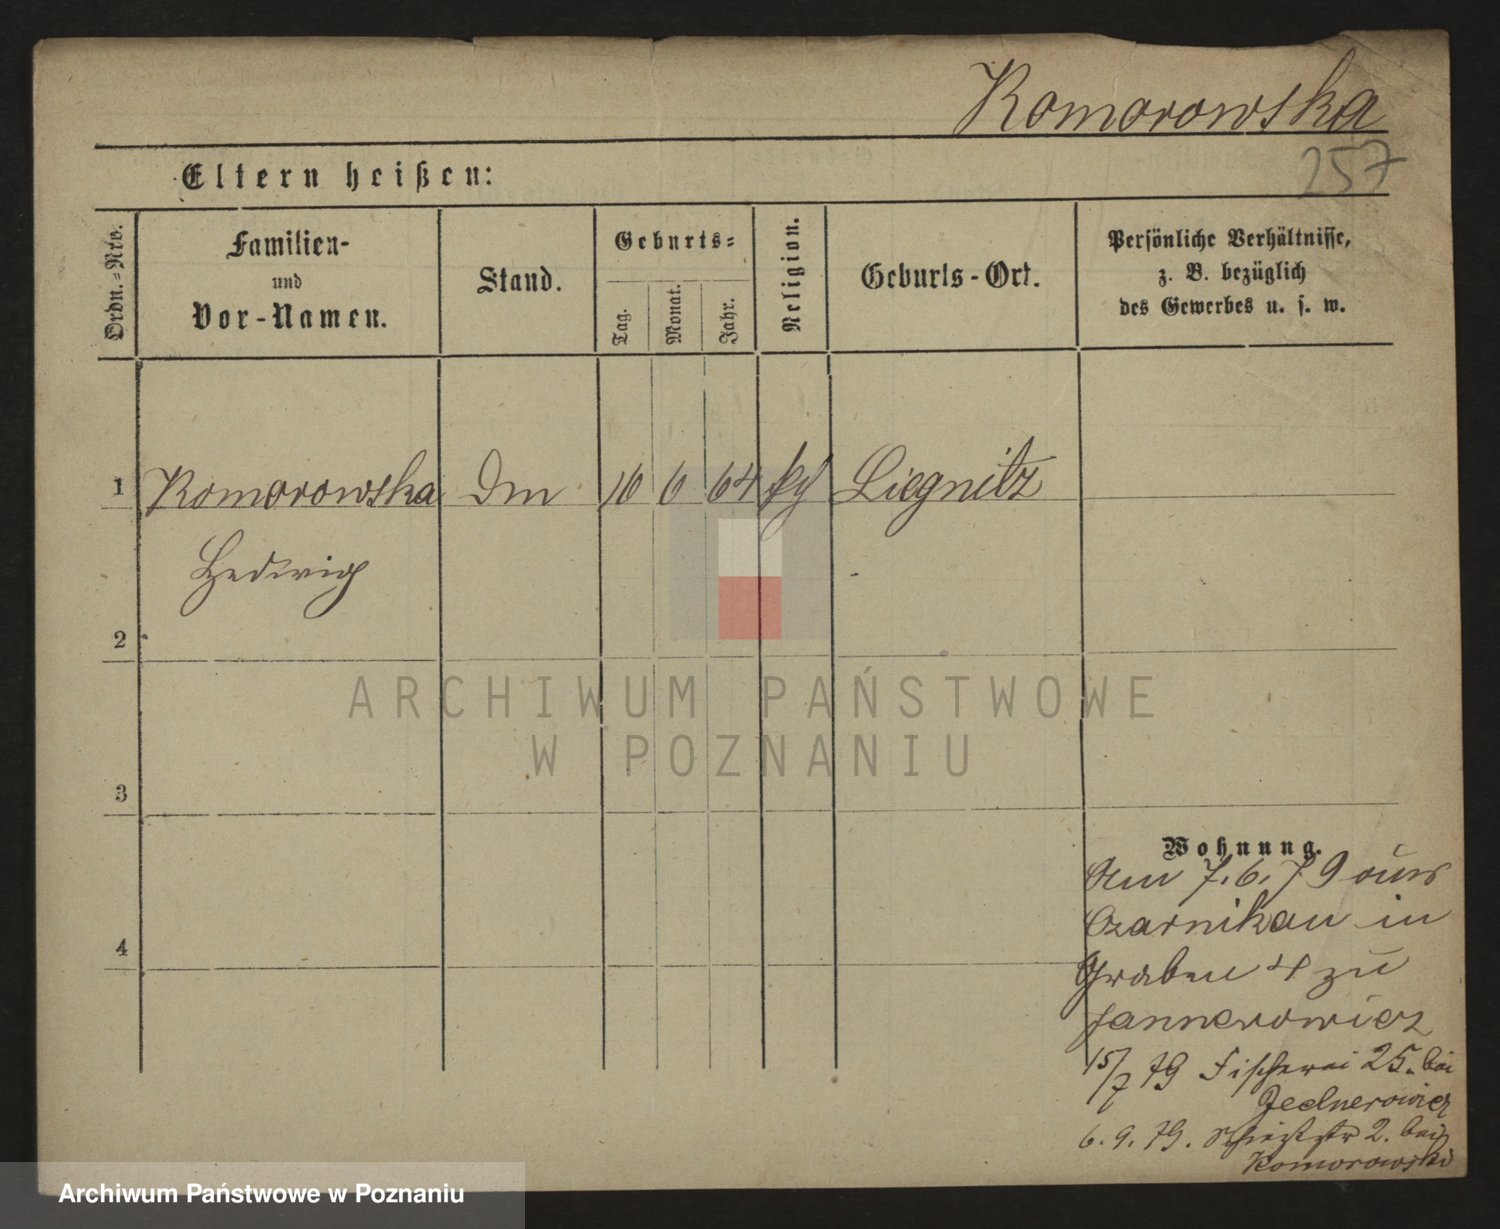 Komorowska
257
Eltern heißen:
Ordn.-Nro.
Familien-
und
Vor-Namen.
Stand.
Geburts-
Tag.
Monat.
Jahr.
Religion.
Geburts-Ort.
Persönliche Verhältnisse,
z. B. bezüglich
des Gewerbes u. s. w.
1 Komorowska Dm 16 6 64 kg Liegnitz
Hedwig
2
3
4
Wohnung.
Am 7.6.79 aus
Czarnikau in
Graben 4 zu
Jannerowicz
15/7 79 Fischerei 25. bei
Jednerowicz
6. 9. 79. 2. bei
Komorowski
ARCHIWUM PAŃSTWOWE
W POZNANIU
Archiwum Państwowe w Poznaniu